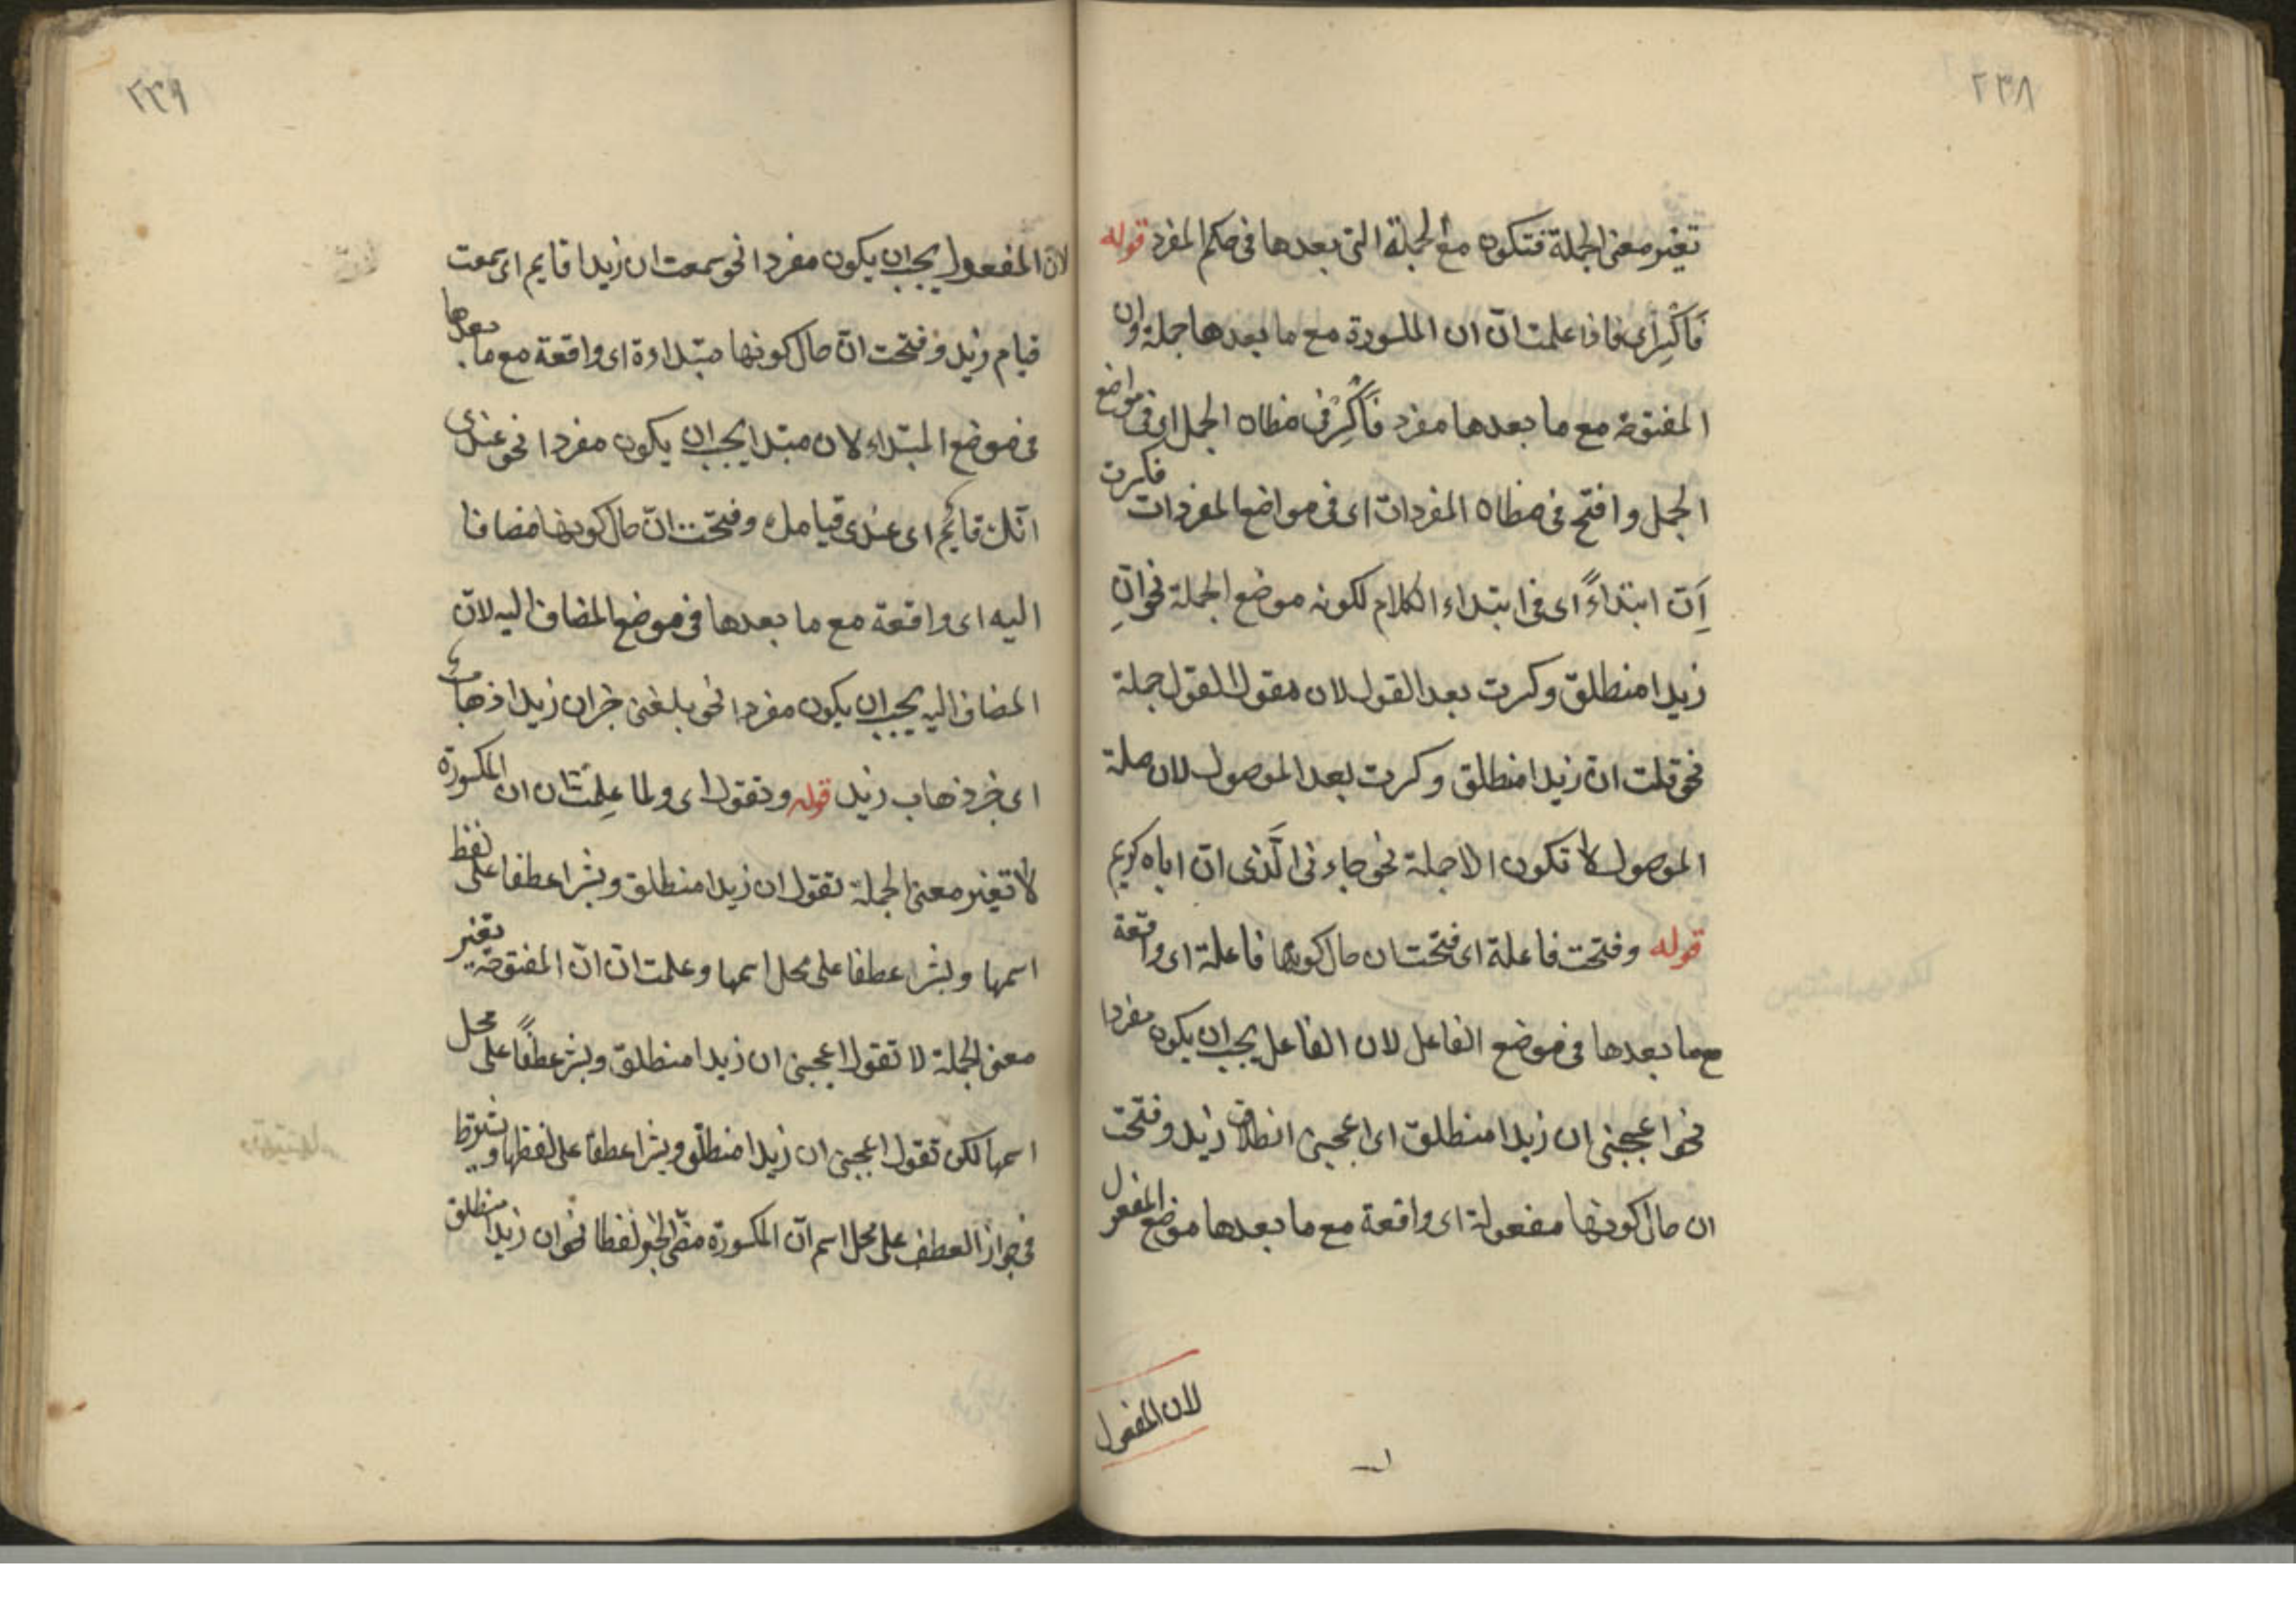 ٢٣٨
تغير معنى الجملة فتكون مع الجملة التى بعدها فى حكم المفرد قوله
فاكسر اى فاذا علمت ان ان المكسورة مع ما بعدها جملة وان
المفتوحة مع ما بعدها مفرد فاكسر فى مظان الجمل اى فى مواضع
الجمل وافتح فى مظان المفردات اى فى مواضع المفردات فكسرت
اِن ابتداءً اى فى ابتداء الكلام لكونه موضع الجملة نحو انِ
زيدا منطلق وكسرت بعد القول لان مقول القول جملة
نحو قلت ان زيدا منطلق وكسرت بعد الموصول لان صلة
الموصول لا تكون الا جملة نحو جاءنى الَّذى ان اباه كريم
قوله وفتحت فاعلة اى فتحت ان حال كونها فاعلة اى واقعة
مع ما بعدها فى موضع الفاعل لان الفاعل يجب ان يكون مفردا
نحو اعجبنى ان زيدا منطلق اى اعجبنى انطلاق زيد وفتحت
ان حال كونها مفعولة اى واقعة مع ما بعدها موضع المفعول
لان المفعول
٢٣٩
لان المفعول يجب ان يكون مفردا نحو سمعت ان زيدا قايم اى سمعت
قيام زيد وفتحت انّ حال كونها مبتداءة اى واقعة مع ما بعدها
فى موضع المبتداء لان مبتدا يجب ان يكون مفردا نحو عندى
انّك قائم اى عندى قيامك وفتحت انّ حال كونها مضافا
اليه اى واقعة مع ما بعدها فى موضع المضاف اليه لانّ
المضاف اليه يجب ان يكون مفردا نحو بلغنى خبر ان زيدا ذهب
اى خبر ذهاب زيد قوله وتقول اى ولما علمت ان ان المكسورة
لا تغير معنى الجملة تقول ان زيدا منطلق وبشرا عطفا على لفظ
اسمها وبشر عطفا على محل اسمها وعلمت ان انّ المفتوحة تغير
معنى الجملة لا تقول اعجبنى ان زيدا منطلق وبشر عطفًا على محل
اسمها لكن تقول اعجبنى ان زيدا منطلق وبشرا عطفا على لفظها ويشترط
فى جواز العطف على محل اسم انّ المكسورة مضى الخبر لفظا نحو ان زيدا منطلق